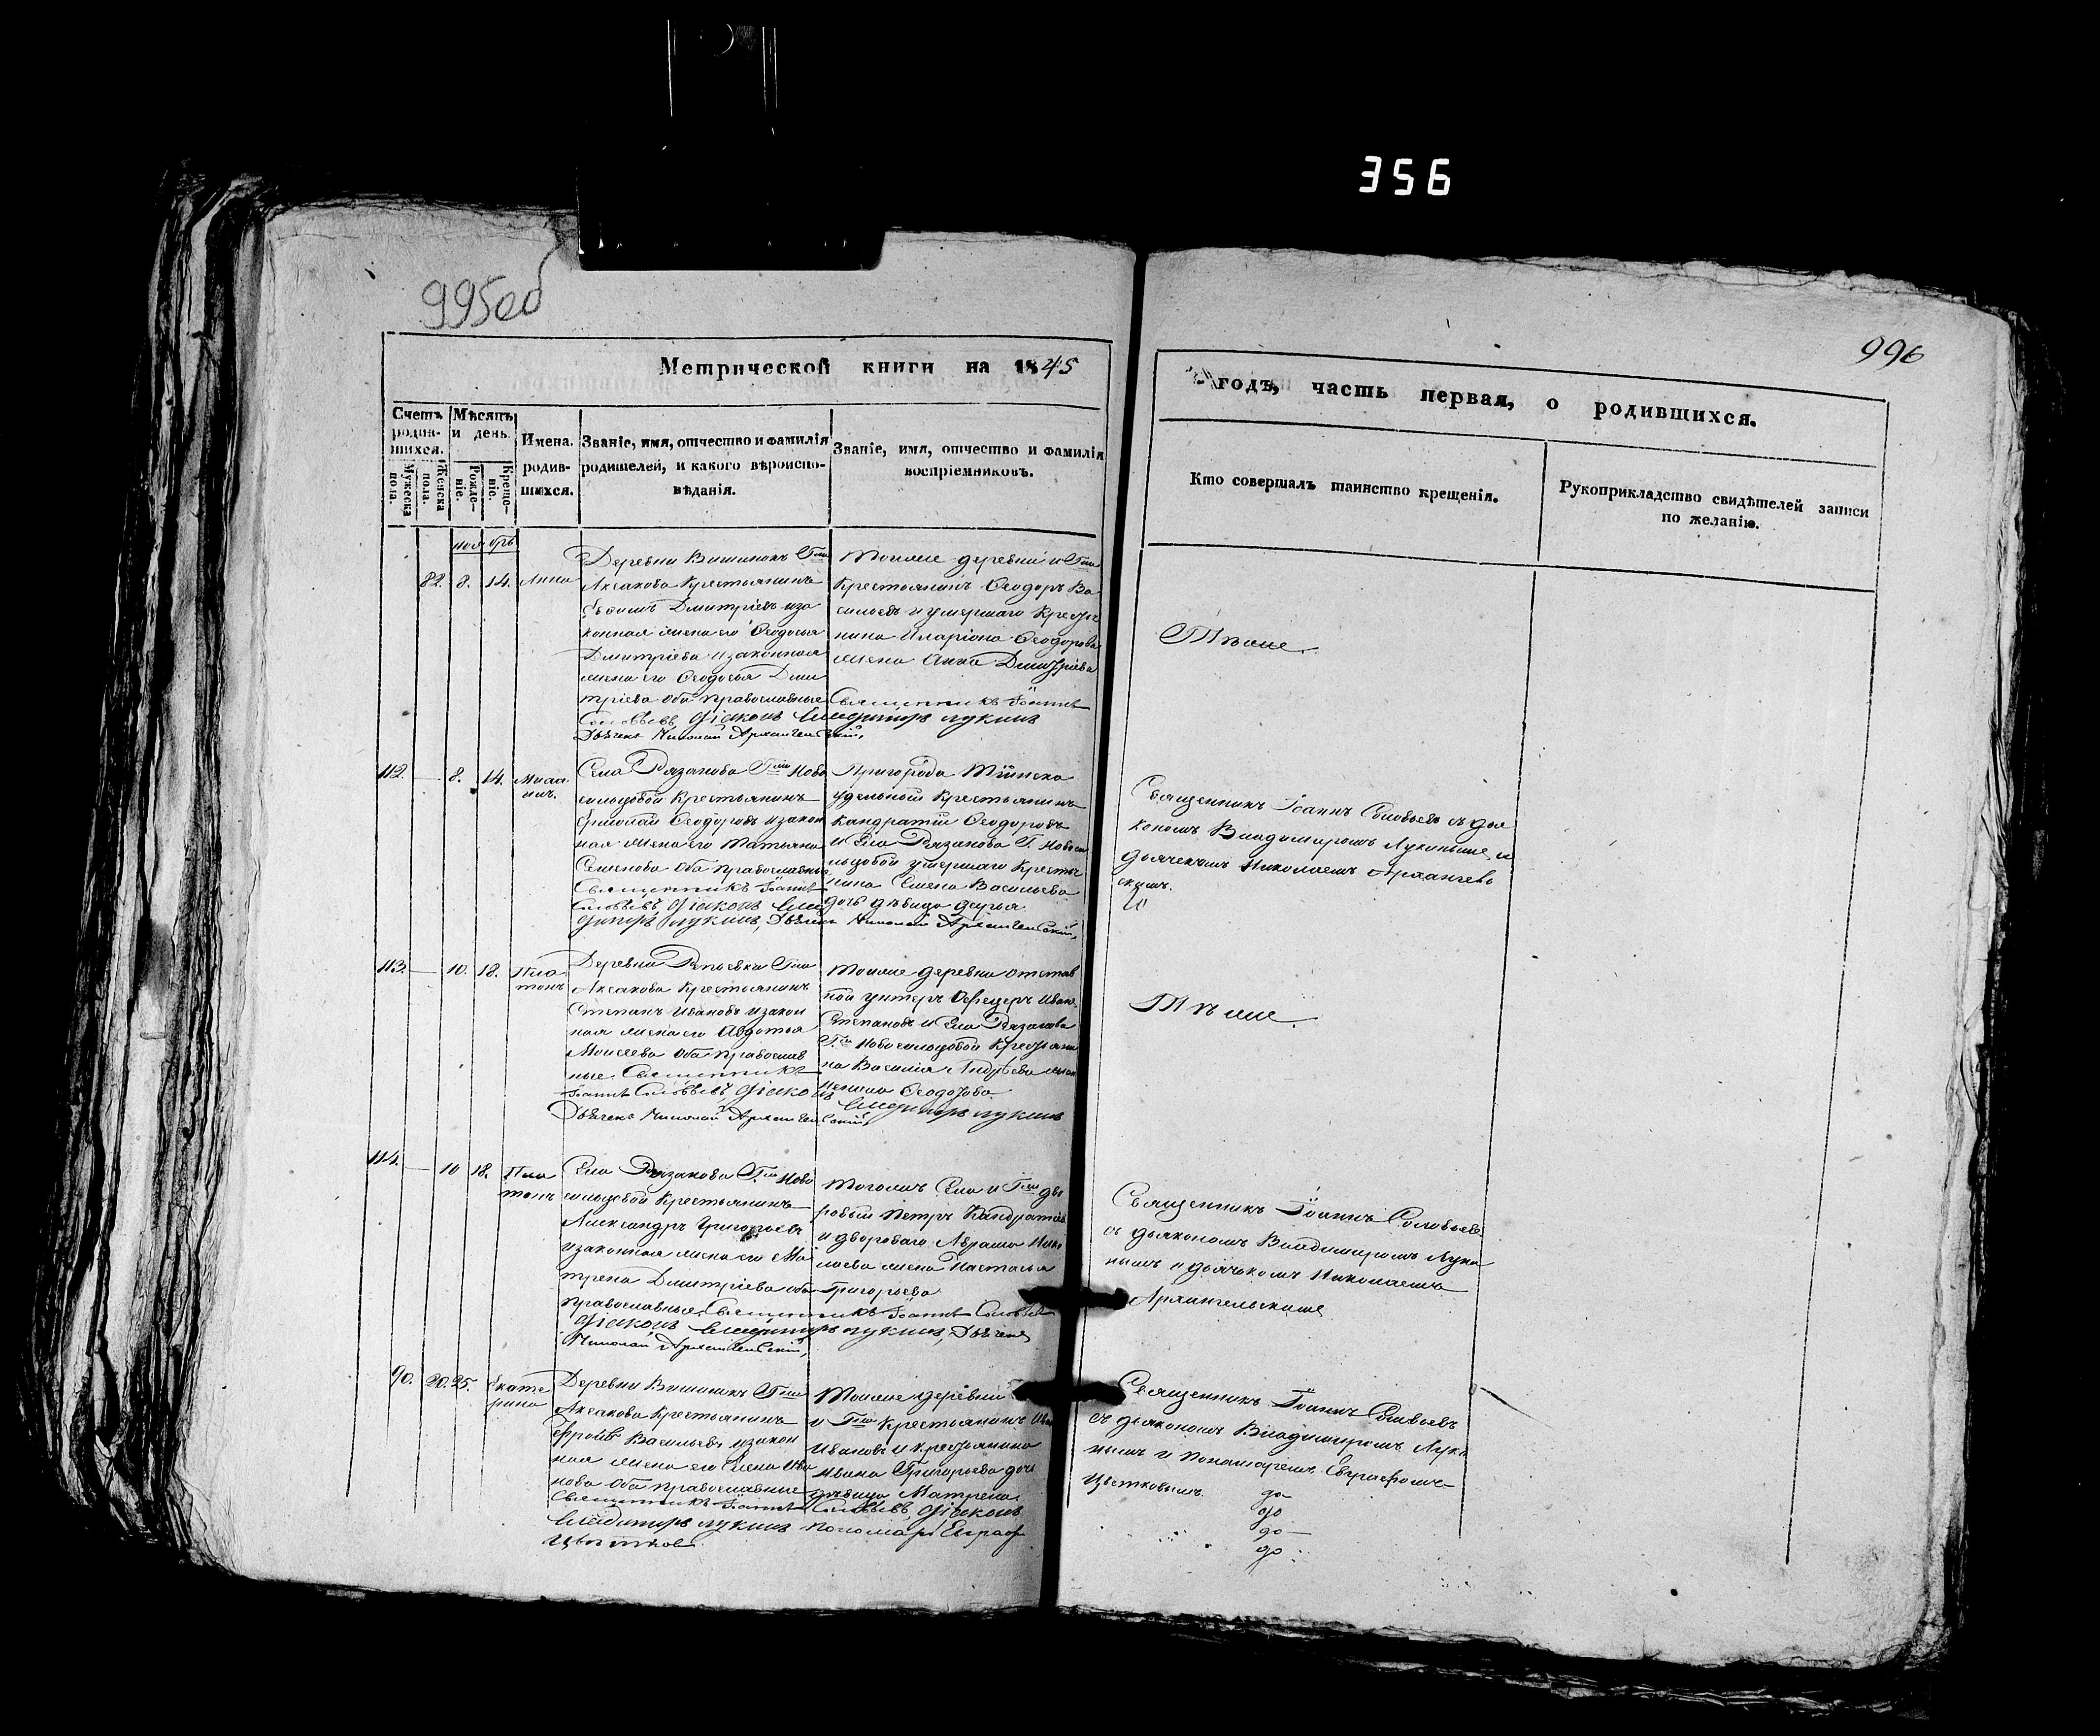 356
995об
996
Метрической книги на 1845
годъ, часть первая, о родившихся.
Счетъ родив-шихся.
Мужеска пола.
Женска пола.
Мѣсяцъ и день.
Рожде-ніе.
Креще-ніе.
Имена родив-шихся.
Званіе, имя, отчество и фамилія
родителей, и какого вѣроиспо-
вѣданія.
Званіе, имя, отчество и фамилія
воспріемниковъ.
Кто совершалъ таинство крещенія.
Рукоприкладство свидѣтелей записи
по желанію.
ноябрь
82. 8. 14. Анна
Деревни Вишинокъ Гжи
Аксакова Крестьянинъ
Дмитріевъ иза
конная жена его Ѳеодосья
Дмитріева изаконная
жена его Ѳеодосья Дми
тріева оба православные
Тойже деревни и Гжи
Крестьянинъ Ѳеодоръ Ва
сильевъ и умершаго Крестья
нина Иларіона Ѳеодорова
жена Анна Дмитріева
Священникъ Іоаннъ
Соловьевъ, Діаконъ Владимиръ Лукинъ
Дьячекъ Николай Архангельскій,
Тѣже.
112. — 8. 14.
Села Рязанова Гжи Ново
сильцовой Крестьянинъ
Ермолай Ѳеодоровъ изакон
ная жена его Татьяна
Семенова оба православные
Священникъ Іоаннъ
Соловьевъ, Діаконъ Вла
димиръ Лукинъ, Дьячекъ Николай Архангельскій,
Пригорода Тіинска
удельный Крестьянинъ
Кандратій Ѳеодоровъ
и Села Рязанова Г. Новоси
льцовой умершаго Крестья
нина Семена Васильева
дочь дѣвица Дарья
Священникъ Іоаннъ Соловьевъ съ дья
кономъ Владимиромъ Лукинымъ и
дьячкомъ Николаемъ Архангель
скимъ.
113. — 10. 18. Пла
тонъ
Деревни Репьевки Гжи
Аксакова Крестьянинъ
Степанъ Ивановъ изакон
ная жена его Авдотья
Моисеева оба православ
ные Священникъ
Іоаннъ Соловьевъ, Діаконъ
Владимиръ Лукинъ
Дьячекъ Николай Архангельскій,
Тойже деревни отстав
ной унтеръ Офецеръ Иванъ
Степановъ и Села Рязанова
Гжи Новосильцовой Крестьяни
на Василія Андрѣева жена
Ѳеодотова
Тѣже.
114. — 10 18. Пла
тонъ
Села Рязанова Гжи Ново
сильцовой Крестьянинъ
Александръ Григорьевъ
изаконная жена его Ма
трена Дмитріева оба
православные Священникъ Іоаннъ Соловьевъ
Діаконъ Владимиръ Лукинъ, Дьячекъ
Николай Архангельскій,
Тогожъ Села и Гжи дво
ровый Петръ Кандратьевъ
и двороваго Абрама Нико
лаева жена Настасья
Григорьева
Священникъ Іоаннъ Соловьевъ
съ дьякономъ Владимиромъ Луки
нымъ и дьячкомъ Николаемъ
Архангельскимъ
90. 20. 25. Екате
рина
Деревни Вишинокъ Гжи
Аксакова Крестьянинъ
Васильевъ изакон
ная жена его Елена Ива
нова оба православные
Священникъ Іоаннъ Соловьевъ, Діаконъ
Владимиръ Лукинъ пономарь Евграфъ
Цвѣтковъ
Тойже деревни
и Гжи Крестьянинъ Иванъ
Ивановъ и крестьянина
Ивана Григорьева дочь
дѣвица Матрена
Священникъ Іоаннъ Соловьевъ
съ дьякономъ Владимиромъ Луки
нымъ и Пономаремъ Евграфомъ
Цвѣтковымъ.